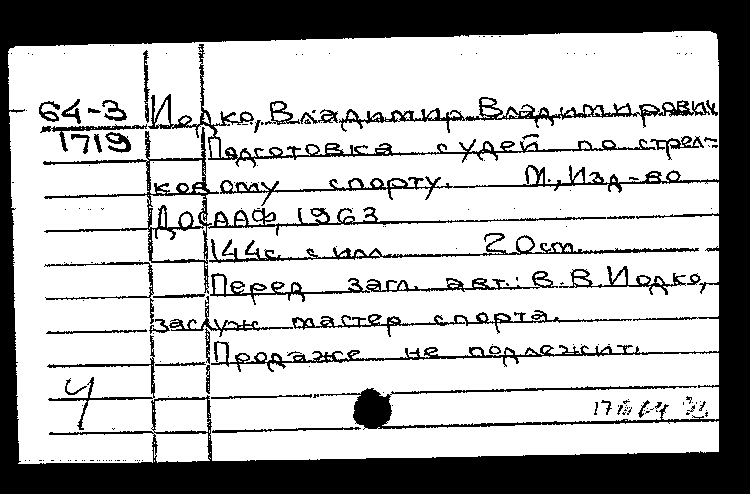 64-3 Иодко, Владимир Владимирович
1719 Подготовка судей по стрел-
ковому спорту. М., Изд-во
ДОСААФ, 1963.
144с. с илл. 20 ст.
Перед загл. авт.: В. В. Иодко,
заслуж мастер спорта.
Продаже не подлежит.
Ч
17 64